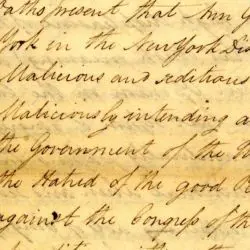 Oaths present that Ann G
York in the New York Dis
Malicious and seditious
Maliciously intending a
the Government of the
the Hatred of the good
against the Congress of th